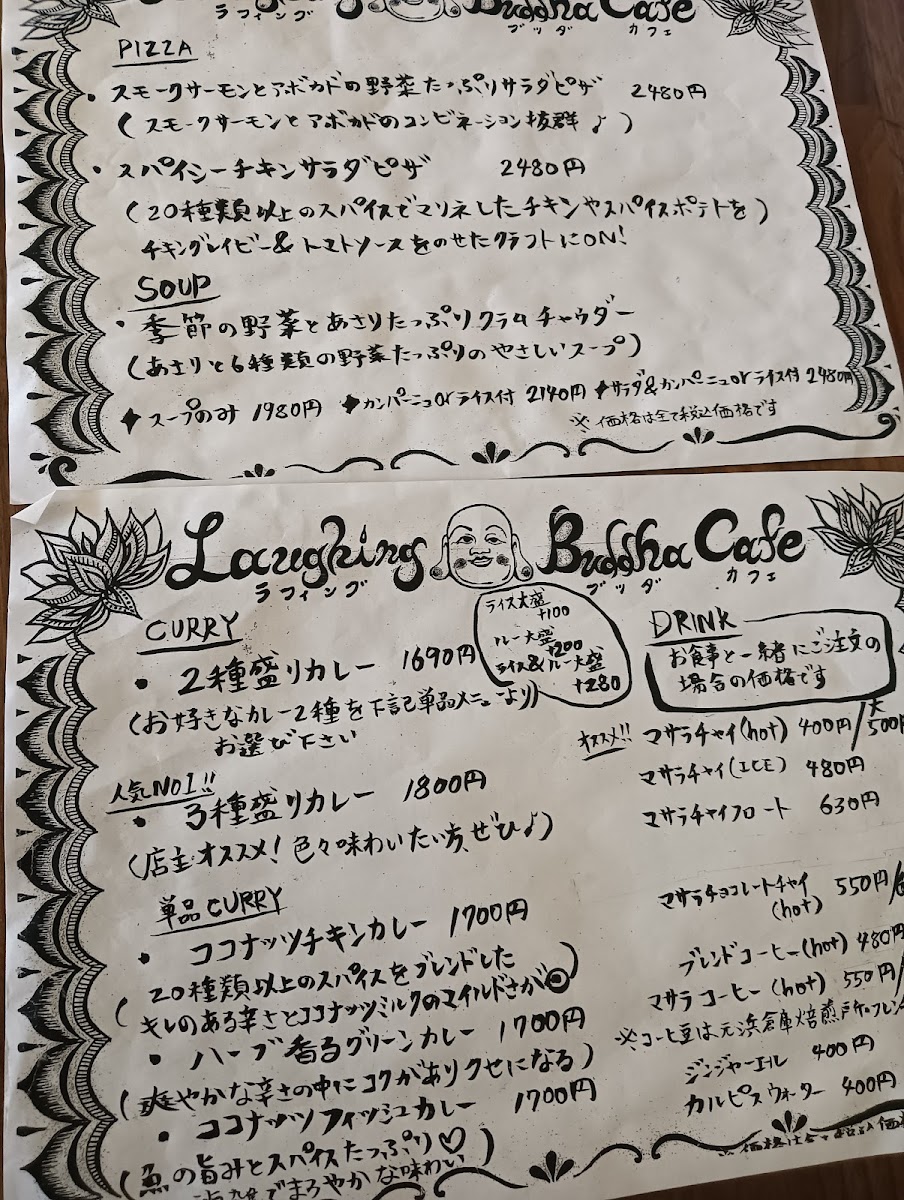 Buddha Cafe
ラフィング ブッダ カフェ
PIZZA
・スモークサーモンとアボカドの野菜たっぷりサラダピザ 2480円
(スモークサーモンとアボカドのコンビネーション抜群♪)
・スパイシーチキンサラダピザ 2480円
(20種類以上のスパイスでマリネしたチキンやスパイスポテトを)
チキングレイビー&トマトソースをのせたクラフトにON!
SOUP
・季節の野菜とあさりたっぷりクラムチャウダー
(あさりと6種類の野菜たっぷりのやさしいスープ)
◆スープのみ 1980円 ◆カンパーニュorライス付 2140円 ◆サラダ&カンパーニュorライス付 2480円
※価格は全て税込価格です
Laughing Buddha Cafe
ラフィング ブッダ カフェ
CURRY
・2種盛りカレー 1690円
(お好きなカレー2種を下記単品メニューより)
お選び下さい
ライス大盛
+100
ルー大盛
+200
ライス&ルー大盛
+280
人気NO1!!
・3種盛りカレー 1800円
(店主オススメ!色々味わいたい方、ぜひ♪)
単品CURRY
・ココナッツチキンカレー 1700円
(20種類以上のスパイスをブレンドした
キレのある辛さとココナッツミルクのマイルドさが◎)
・ハーブ香るグリーンカレー 1700円
(爽やかな辛さの中にコクがありクセになる)
・ココナッツフィッシュカレー 1700円
(魚の旨みとスパイスたっぷり♡)
でまろやかな味わい
DRINK
お食事と一緒にご注文の
場合の価格です
オススメ!! マサラチャイ(hot) 400円/大500円
マサラチャイ(ICE) 480円
マサラチャイフロート 630円
マサラチョコレートチャイ 550円/
(hot)
ブレンドコーヒー(hot) 480円
マサラコーヒー(hot) 550円/
※コーヒー豆は元浜倉庫焙煎
ジンジャーエール 400円
カルピスウォーター 400円
※価格は全て税込価格